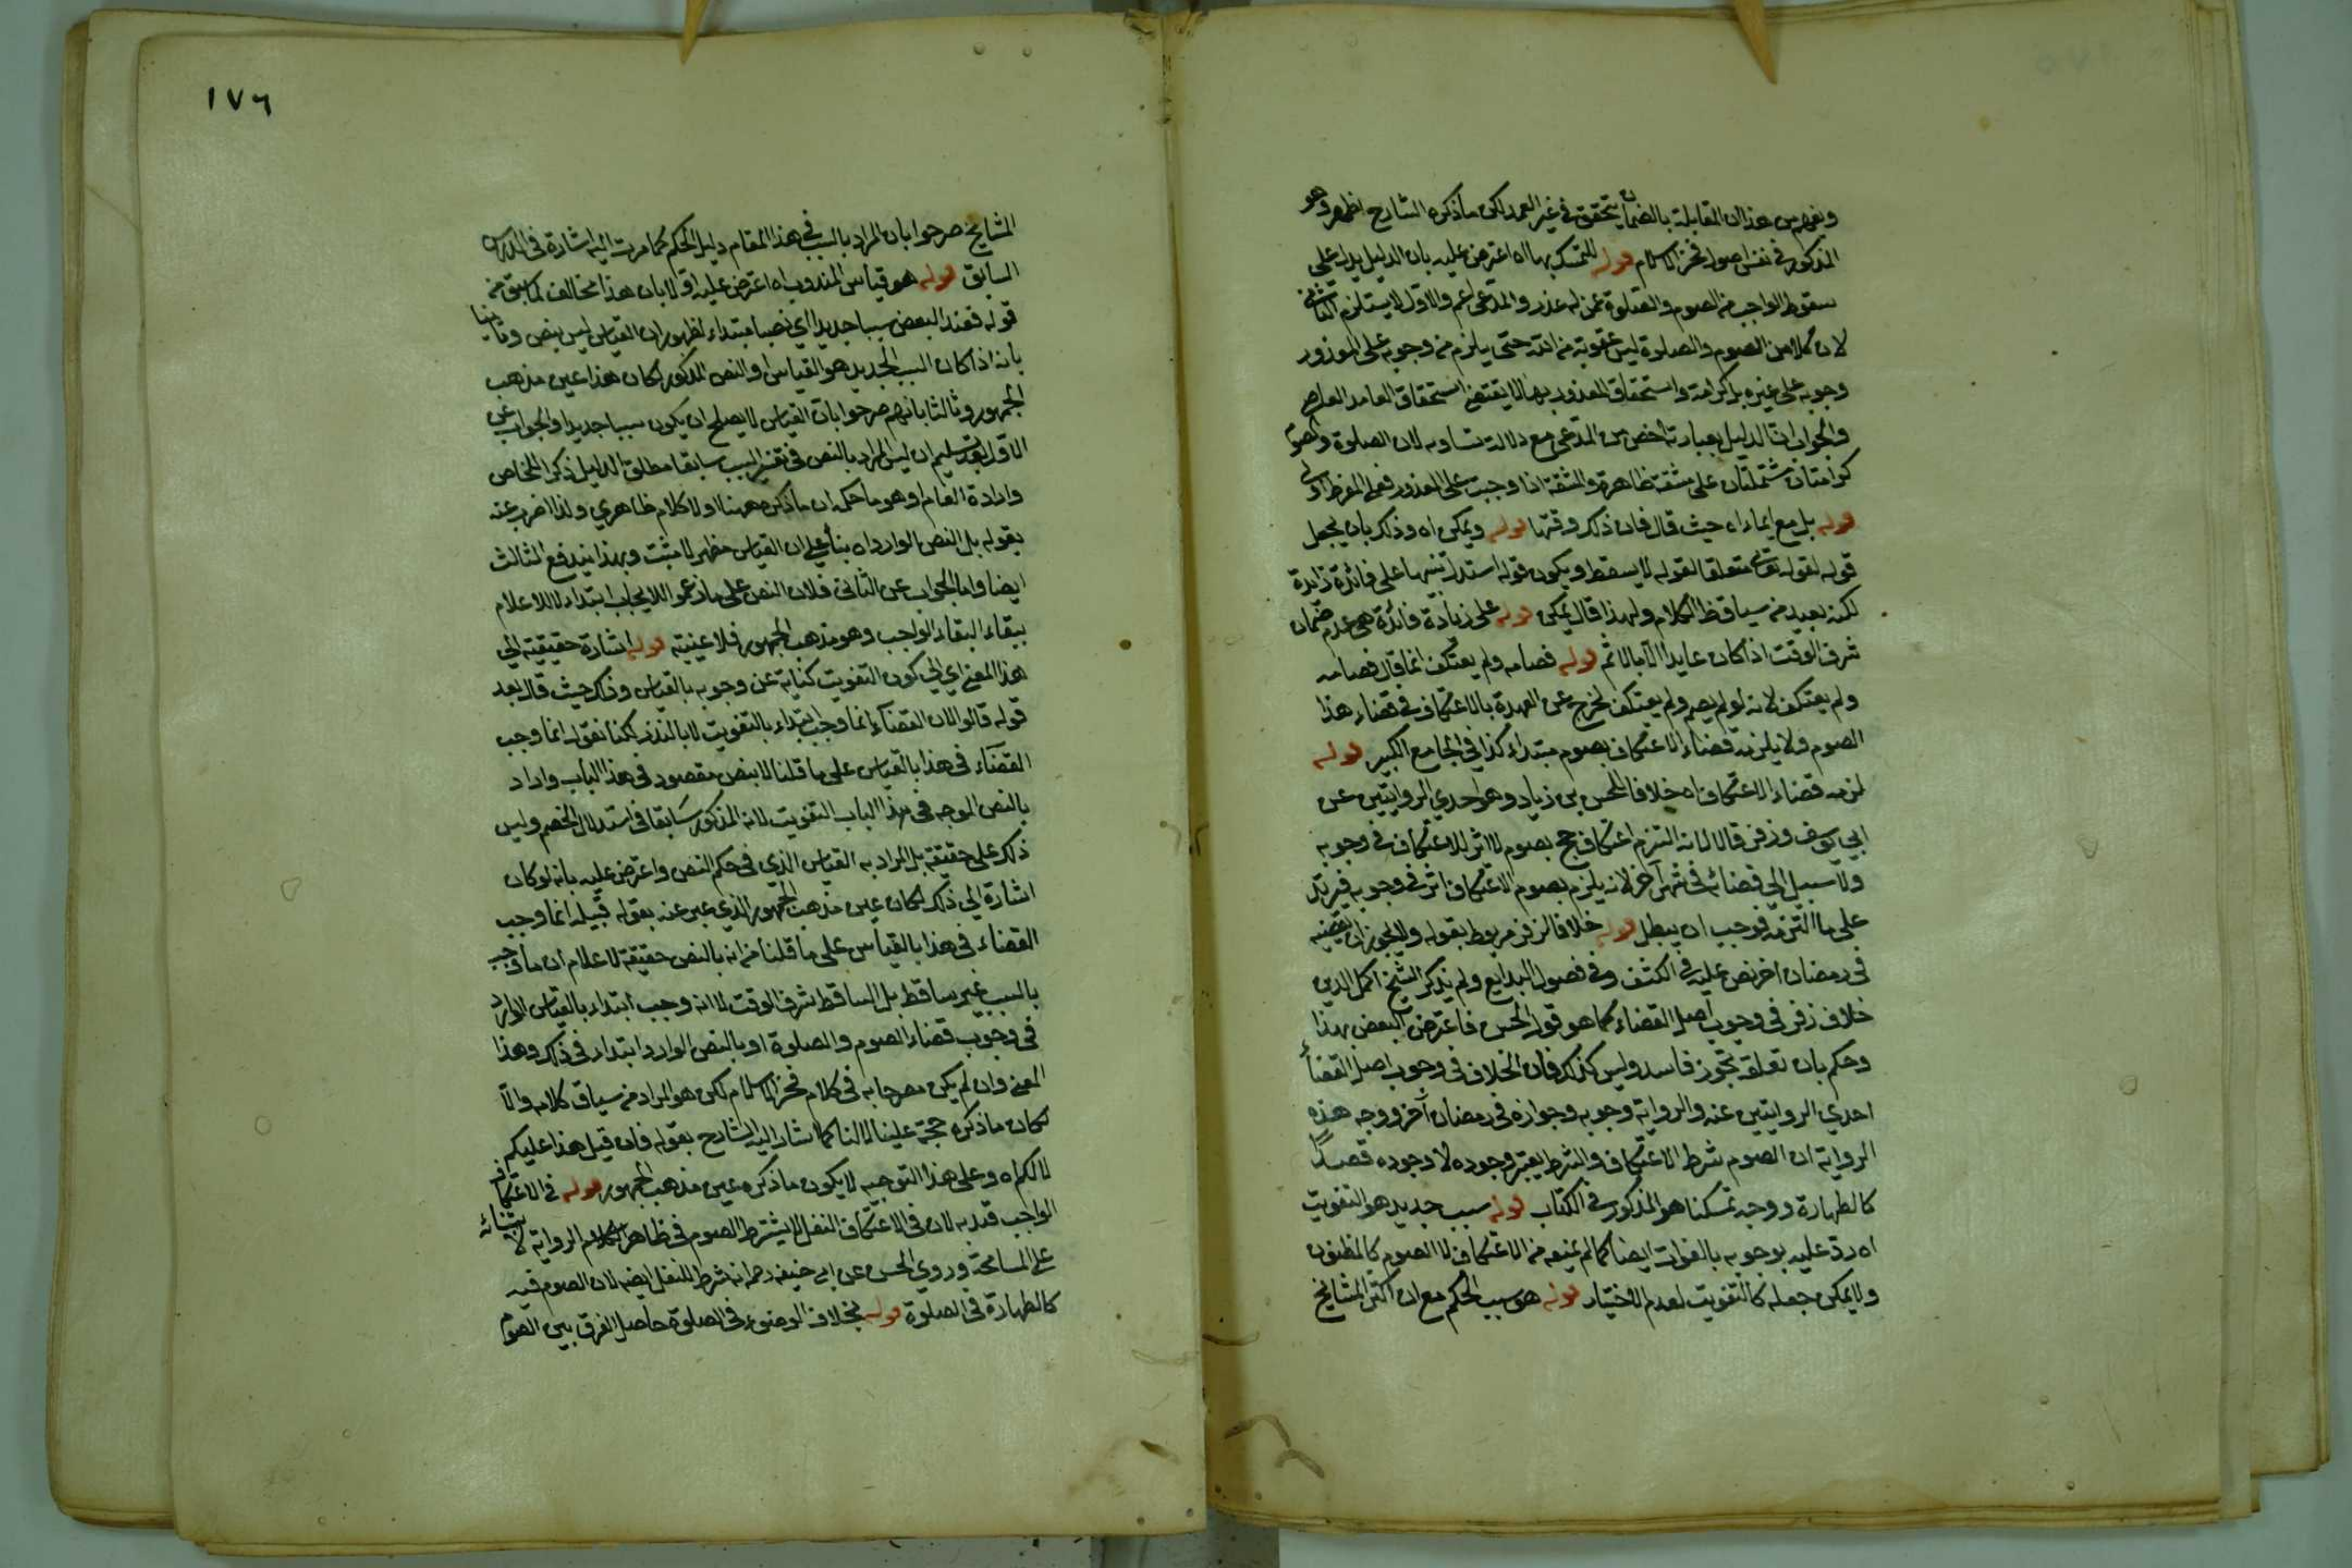 ويفهم من هذا ان المقابلة بالضمان يتحقق في غير العمد لكن ما ذكره الشارح اظهر وهو
المذكور في نفس اصول فخر الاسلام قوله للتمسك بها اه اعترض عليه بان الدليل يدل على
سقوط الواجب من الصوم والصلوة عمن له عذر والمدعى اعم والاول لا يستلزم الثاني
لان كلا من الصوم والصلوة ليس عقوبة من الله حتى يلزم من وجوبه على المعذور
وجوبه على غيره بل كرامة واستحقاق المعذور بها لا يقتضي استحقاق العامد العاصي
والجواب ان الدليل بعبارته اخص من المدعى مع دلالة تساويه لان الصلوة والصوم
كرامتان مشتملتان على مشقة ظاهرة والمشقة اذا وجبت على المعذور فعلى المفرط اولى
قوله بل مع ايماء اه حيث قال فان ذلك وقتها قوله ويمكن اه وذلك بان يجعل
قوله لقوله تع متعلقا لقوله لا يسقط ويكون قوله استدل تنبيها على فائدة زائدة
لكنه بعيد من سياق الكلام ولهذا قال يمكن قوله على زيادة فائدة هي عدم ضمان
شرف الوقت اذا كان عايدا الا بالاثم قوله فصامه ولم يعتكف انما قال فصامه
ولم يعتكف لانه لو لم يصم ولم يعتكف لخرج عن العهدة بالاعتكاف في قضاء هذا
الصوم ولا يلزمه قضاء الاعتكاف بصوم مبتداء كذا في الجامع الكبير قوله
لزمه قضاء الاعتكاف اه خلافا للحسن بن زياد وهو احدي الروايتين عن
ابي يوسف وزفر قالا لانه التزم اعتكاف بصوم لا اثر للاعتكاف في وجوبه
ولا سبيل الي قضائه في شهر آخر لانه يلزم بصوم الاعتكاف اثر في وجوبه فيزيد
على ما التزمه فوجب ان يبطل قوله خلافا لزفر مربوط بقوله ولا يجوز ان يقضيه
في رمضان اخر نص عليه في الكشف وفي فصول البدايع ولم يذكر الشيخ اكمل الدين
خلاف زفر في وجوب اصل القضاء كما هو قول الحسن فاعترض البعض بهذا
وحكم بان تعلقه بتجوز فاسد وليس كذلك فان الخلاف في وجوب اصل القضاء
احدي الروايتين عنه والرواية وجوبه وجوازه في رمضان آخر ووجه هذه
الرواية ان الصوم شرط الاعتكاف والشرط يعتبر وجوده لا وجوده قصدًا
كالطهارة ووجه تمسكنا هو المذكور في الكتاب قوله سبب جديد هو التفويت
اه رد عليه بوجوبه بالفوات ايضا كما لم يمنعه من الاعتكاف لا الصوم كالمظنون
ولا يمكن جعله كالتفويت لعدم الاختيار قوله هو سبب الحكم مع ان اكثر المشايخ
١٧٦
المشايخ صرحوا بان المراد بالسبب في هذا المقام دليل الحكم كما مرت اليه اشارة في الدرس
السابق قوله هو قياس المنذور اه اعترض عليه اولا بان هذا مخالف لما سبق من
قوله فعند البعض سببا جديدا اي نصا مبتداء لظهور ان القياس ليس بنص وثانيا
بانه اذا كان السبب الجديد هو القياس او النص المذكور لكان هذا عين مذهب
الجمهور وثالثا بانهم صرحوا بان القياس لا يصلح ان يكون سببا جديدا والجواب عن
الاول بعد تسليم ان ليس المراد بالنص في تفسير السبب سابقا مطلق الدليل ذكر الخاص
وارادة العام وهو ما حكمه ان ما ذكره ههنا اولا كلام ظاهري ولذا اضرب عنه
بقوله بل النص الوارد اه بناء على ان القياس مظهر لا مثبت وبهذا يندفع الثالث
ايضا واما الجواب عن الثاني فلان النص على ما زعموا للايجاب ابتداء لا للاعلام
ببقاء الواجب وهو مذهب الجمهور فلا عينية قوله اشارة حقيقية الي
هذا المعنى اي الي كون التفويت كناية عن وجوبه بالقياس وذلك حيث قال بعد
قوله قالوا لان القضاء انما وجب ابتداء بالتفويت لا بالنذر لكنا نقول انما وجب
القضاء في هذا بالقياس على ما قلنا لا بنص مقصود في هذا الباب واراد
بالنص الموجه في هذا الباب التفويت لانه المذكور سابقا في استدلال الخصم وليس
ذلك على حقيقته بل المراد به القياس الذي في حكم النص واعترض عليه بانه لو كان
اشارة الي ذلك لكان عين مذهب الجمهور الذي عبر عنه بقوله قبيله انما وجب
القضاء في هذا بالقياس على ما قلنا من انه بالنص حقيقة لاعلام ان ما وجب
بالسبب غير ساقط بل الساقط شرف الوقت لا انه وجب ابتداء بالقياس الوارد
في وجوب قضاء الصوم والصلوة او بالنص الوارد ابتداء في ذلك وهذا
المعنى وان لم يكن مصرحا به في كلام فخر الاسلام لكن هو المراد من سياق كلامه والا
لكان ما ذكره حجة علينا لا لنا كما اشار اليه الشارح بقوله فان قيل هذا عليكم
لا لكم اه وعلى هذا التوجيه لا يكون ما ذكره عين مذهب الجمهور قوله في الاعتكاف
الواجب قيد به لان في الاعتكاف النفل لا يشترط الصوم في ظاهر الرواية لابتنائه
على المسامحة وروي الحسن عن ابي حنيفة رحمه انه شرط للنفل ايضا لان الصوم فيه
كالطهارة في الصلوة قوله بخلاف الوضوء في الصلوة حاصل الفرق بين الصوم